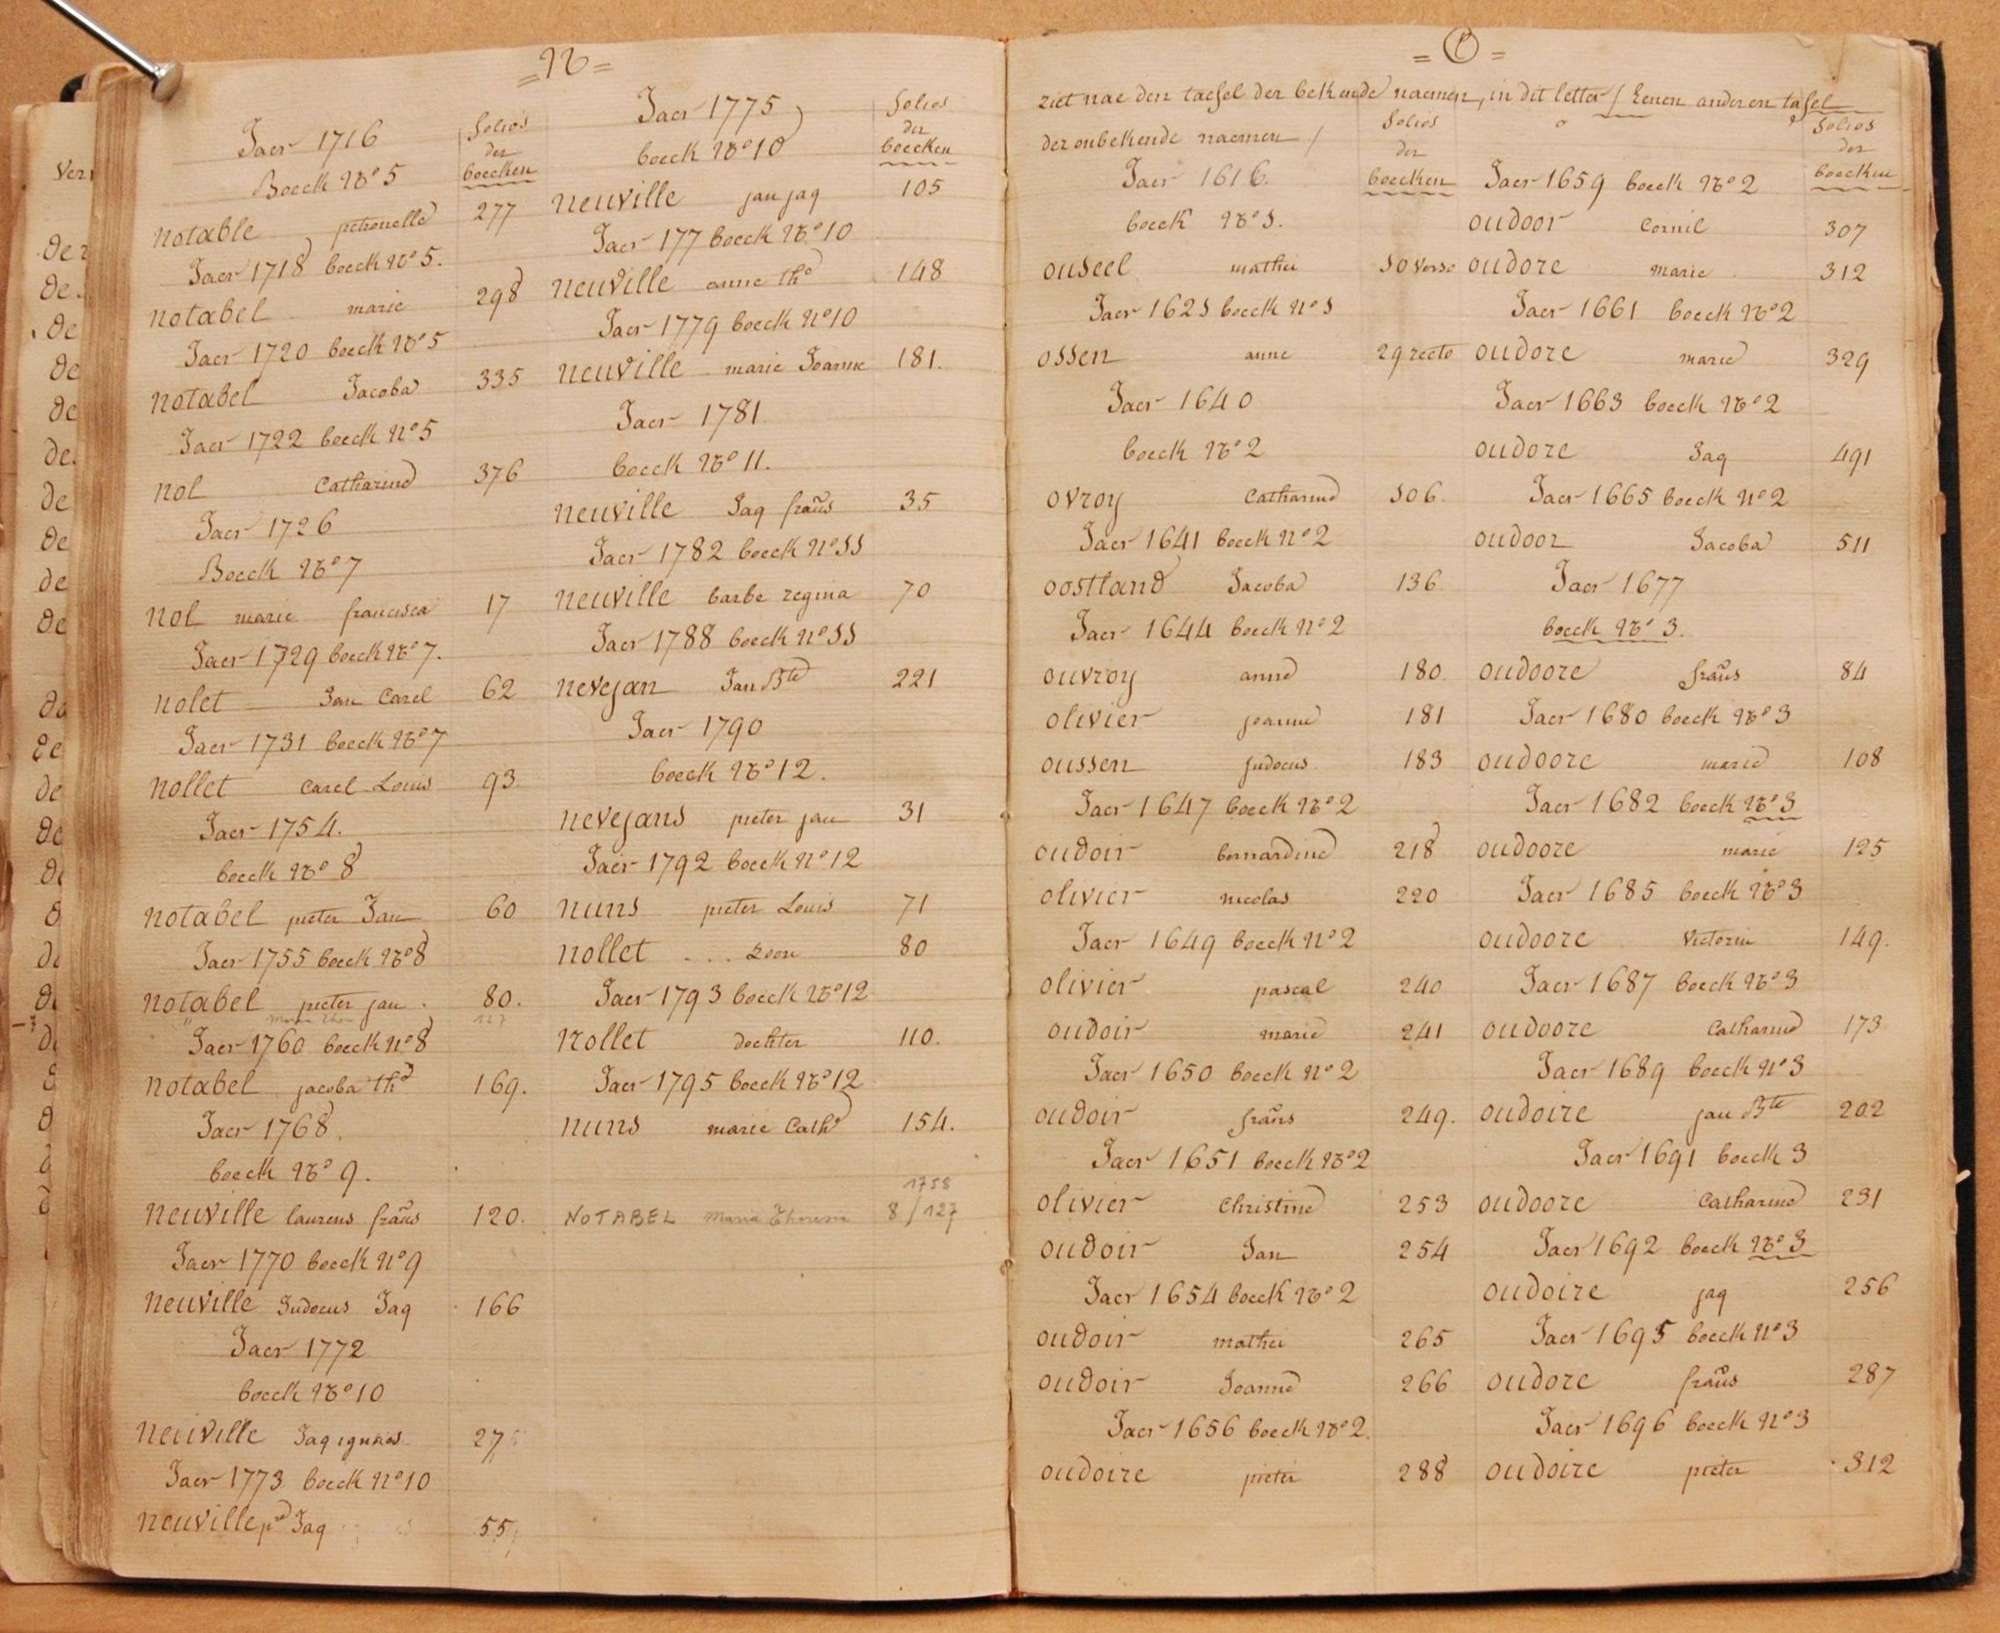 = N =
Jaer 1716
folios der boecken
Boeck No 5
notable petronelle 277
Jaer 1718 boeck No 5.
notabel marie 298
Jaer 1720 boeck No 5
notabel Jacoba 335
Jaer 1722 boeck No 5
nol Catharine 376
Jaer 1726
Boeck No 7
nol marie francisca 17
Jaer 1729 boeck No 7.
nolet Jan Carel 62
Jaer 1731 boeck No 7
nollet Carel Louis 93.
Jaer 1754.
boeck No 8
notabel pieter Jan 60
Jaer 1755 boeck No 8
notabel pieter jan. 80.
" 127
Jaer 1760 boeck No 8
notabel jacoba the 169.
Jaer 1768.
boeck No 9.
neuville laurens frans 120.
Jaer 1770 boeck No 9
neuville Judocus Jaq 166
Jaer 1772
boeck No 10
neuville Jaq ignaes 27
Jaer 1773 boeck No 10
neuville Jaq 55
Jaer 1775
folios der boecken
boeck No 10
neuville jan jaq 105
Jaer 177 boeck No 10
neuville anne the 148
Jaer 1779 boeck No 10
neuville marie Joanne 181.
Jaer 1781
boeck No 11.
neuville Jaq frans 35
Jaer 1782 boeck No 11
neuville barbe regina 70
Jaer 1788 boeck No 11
nevejan Jan Bte 221
Jaer 1790
boeck No 12.
nevejans pieter jan 31
Jaer 1792 boeck No 12
nuns pieter Louis 71
nollet ... Zoon 80
Jaer 1793 boeck No 12
Nollet dochter 110.
Jaer 1795 boeck No 12
nuns marie Cathe 154.
1758
NOTABEL Maria Theresia 8/127
= O =
ziet nae den taefel der bekende naemen, in dit letter / Eenen anderen tafel
der onbekende naemen /
folios der boecken
Jaer 1616.
boeck No 1.
ouseel mathei 10 verso
Jaer 1621 boeck No 1
ossen anne 29 recto
Jaer 1640
boeck No 2
ovroy Catharine 106.
Jaer 1641 boeck No 2
oostland Jacoba 136
Jaer 1644 boeck No 2
ouvroy anne 180.
olivier joanne 181
oussen judocus 183
Jaer 1647 boeck No 2
oudoir bernardine 218
olivier nicolas 220
Jaer 1649 boeck No 2
olivier pascal 240
oudoir marie 241
Jaer 1650 boeck No 2
oudoir frans 249.
Jaer 1651 boeck No 2
olivier Christine 253
oudoir Jan 254
Jaer 1654 boeck No 2
oudoir mathei 265
oudoir Joanne 266
Jaer 1656 boeck No 2.
oudoire pieter 288
folios der boecken
Jaer 1659 boeck No 2
oudoor Cornil 307
oudore marie 312
Jaer 1661 boeck No 2
oudore marie 329
Jaer 1663 boeck No 2
oudore Jaq 491
Jaer 1665 boeck No 2
oudoor Jacoba 511
Jaer 1677
boeck No 3.
oudoore frans 84
Jaer 1680 boeck No 3
oudoore marie 108
Jaer 1682 boeck No 3
oudoore marie 125
Jaer 1685 boeck No 3
oudoore Victorin 149.
Jaer 1687 boeck No 3
oudoore Catharine 173
Jaer 1689 boeck No 3
oudoire jan Bte 202
Jaer 1691 boeck 3
oudoore Catharine 231
Jaer 1692 boeck No 3
oudoire jaq 256
Jaer 1695 boeck No 3
oudore frans 287
Jaer 1696 boeck No 3
oudoire pieter 312